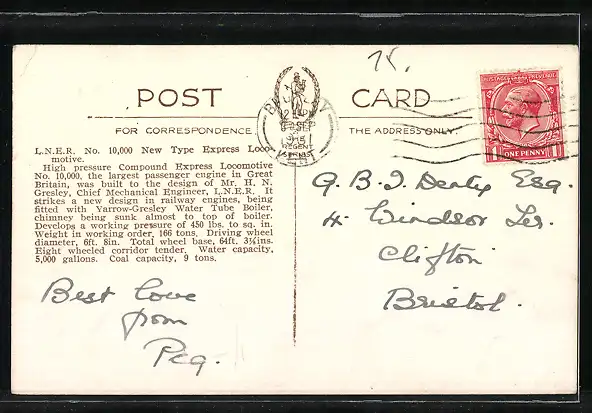 75.
POSTAGE REVENUE
POST CARD
FOR CORRESPONDENCE
THE ADDRESS ONLY
REGENT
SERIES
ONE PENNY
L.N.E.R. No. 10,000 New Type Express Loco-
motive.
High pressure Compound Express Locomotive
No. 10,000, the largest passenger engine in Great
Britain, was built to the design of Mr. H. N.
Gresley, Chief Mechanical Engineer, L.N.E.R. It
strikes a new design in railway engines, being
fitted with Yarrow-Gresley Water Tube Boiler,
chimney being sunk almost to top of boiler.
Develops a working pressure of 450 lbs. to sq. in.
Weight in working order, 166 tons. Driving wheel
diameter, 6ft. 8in. Total wheel base, 64ft. 3¾ins.
Eight wheeled corridor tender. Water capacity,
5,000 gallons. Coal capacity, 9 tons.
Best love
from
Peg.
G. B. J. Esq.
4. Windsor Ter.
Clifton
Bristol.